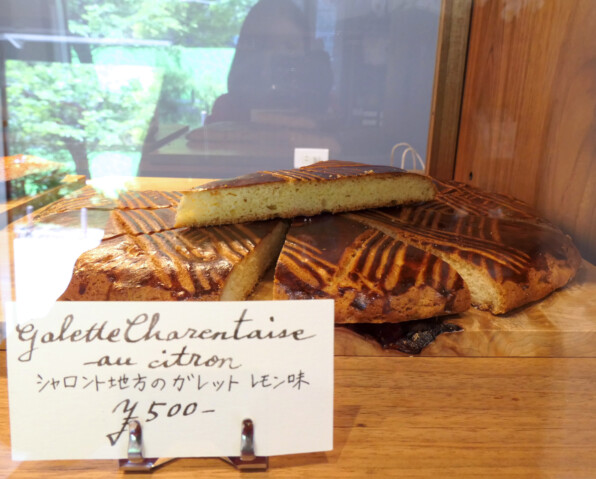 Galette Charentaise
au citron
シャロント地方のガレット レモン味
¥500-